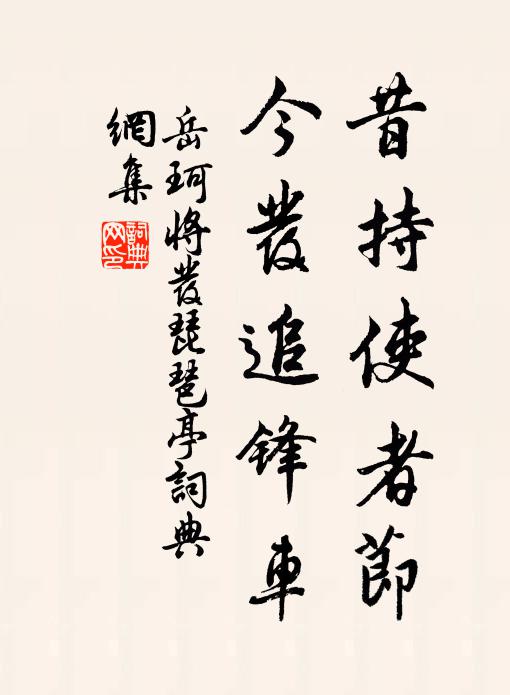 昔持使者節
今發追鋒車
岳珂將發琵琶亭詞典
網集
詞典網印